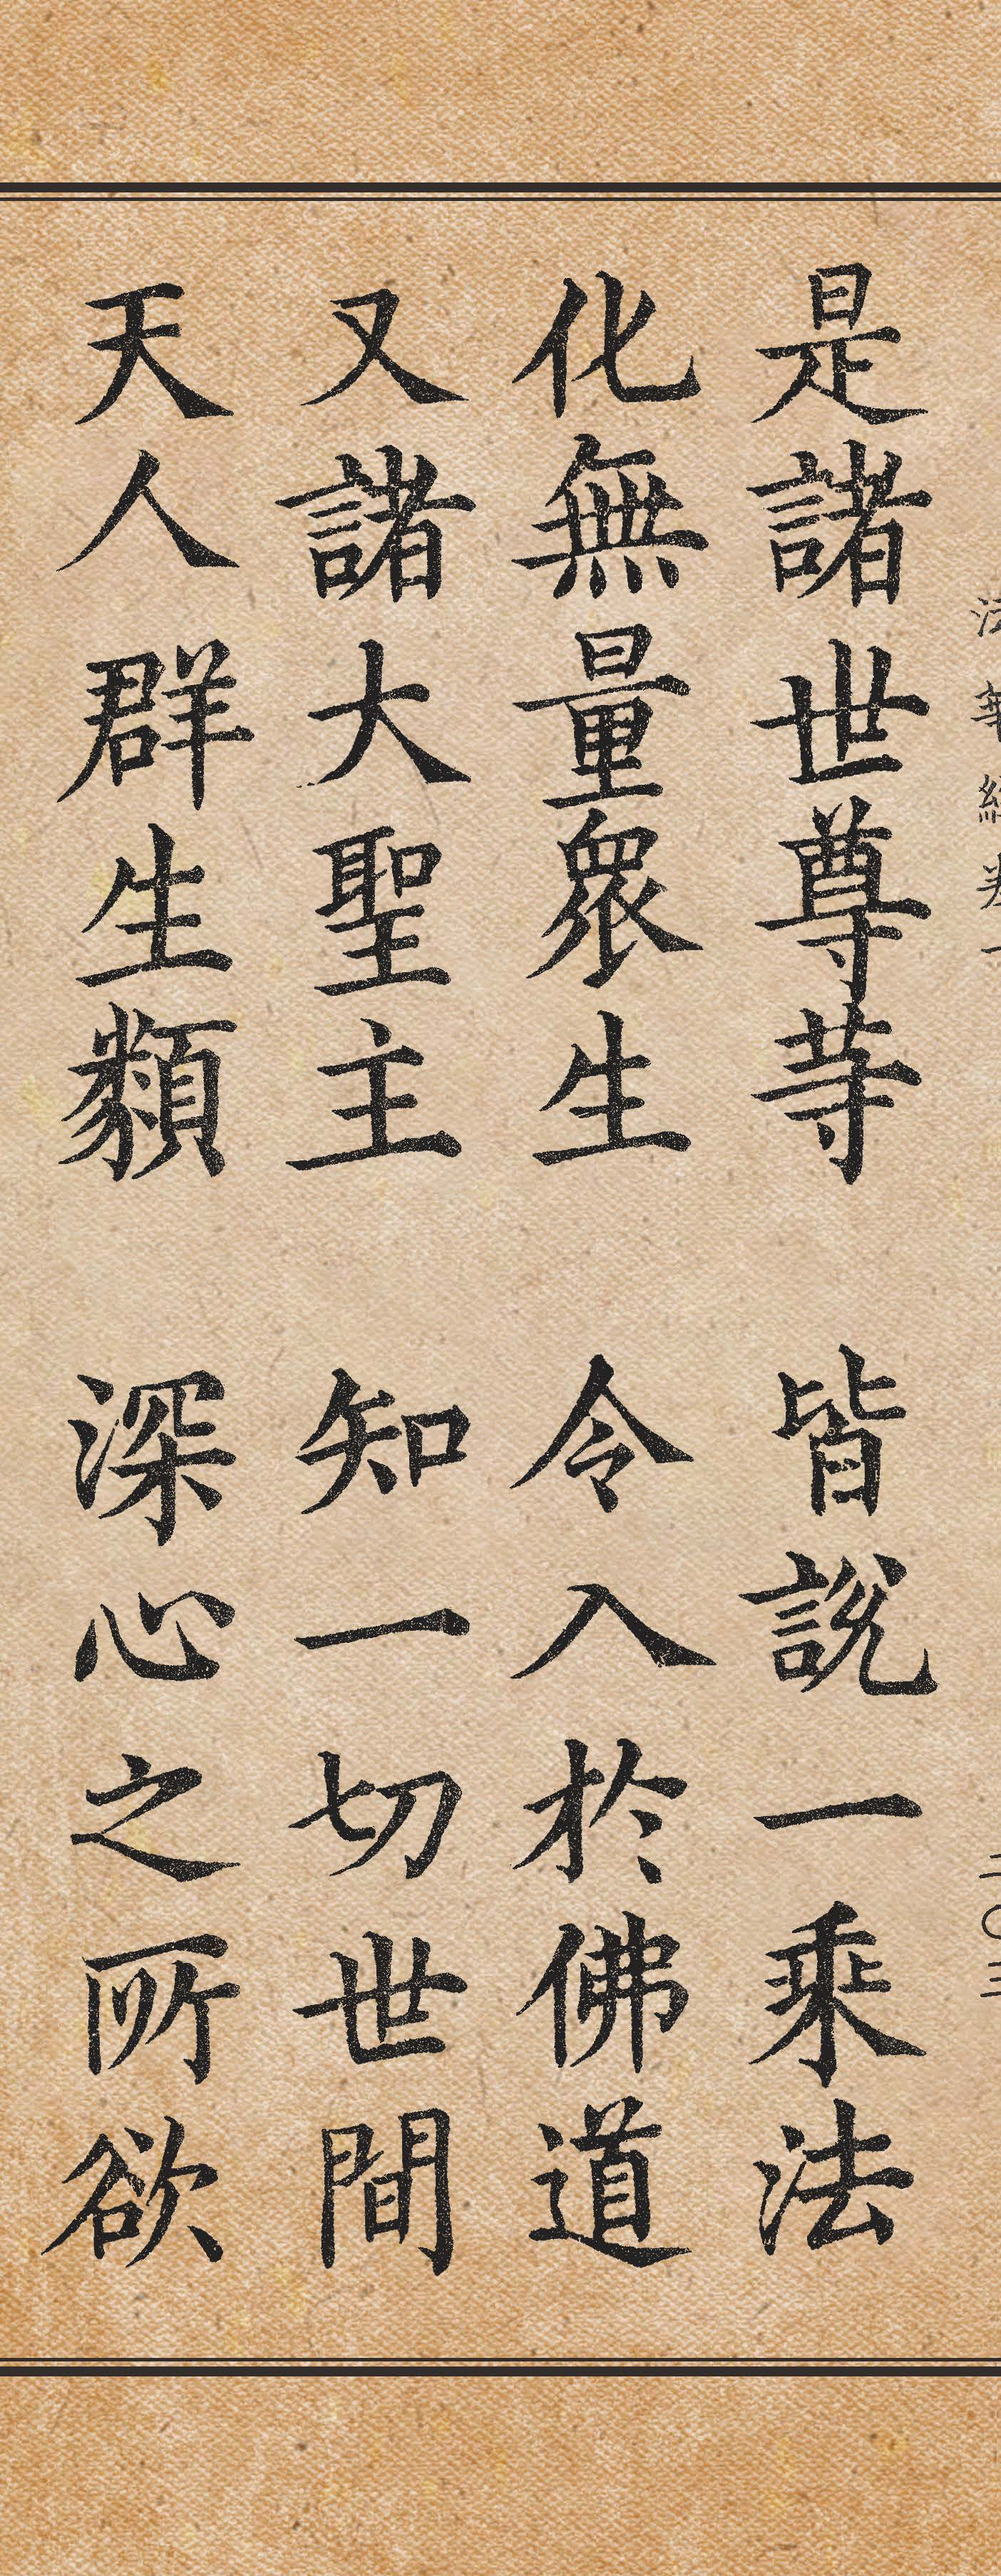 是諸世尊等 皆說一乘法
化無量眾生 令入於佛道
又諸大聖主 知一切世間
天人群生類 深心之所欲